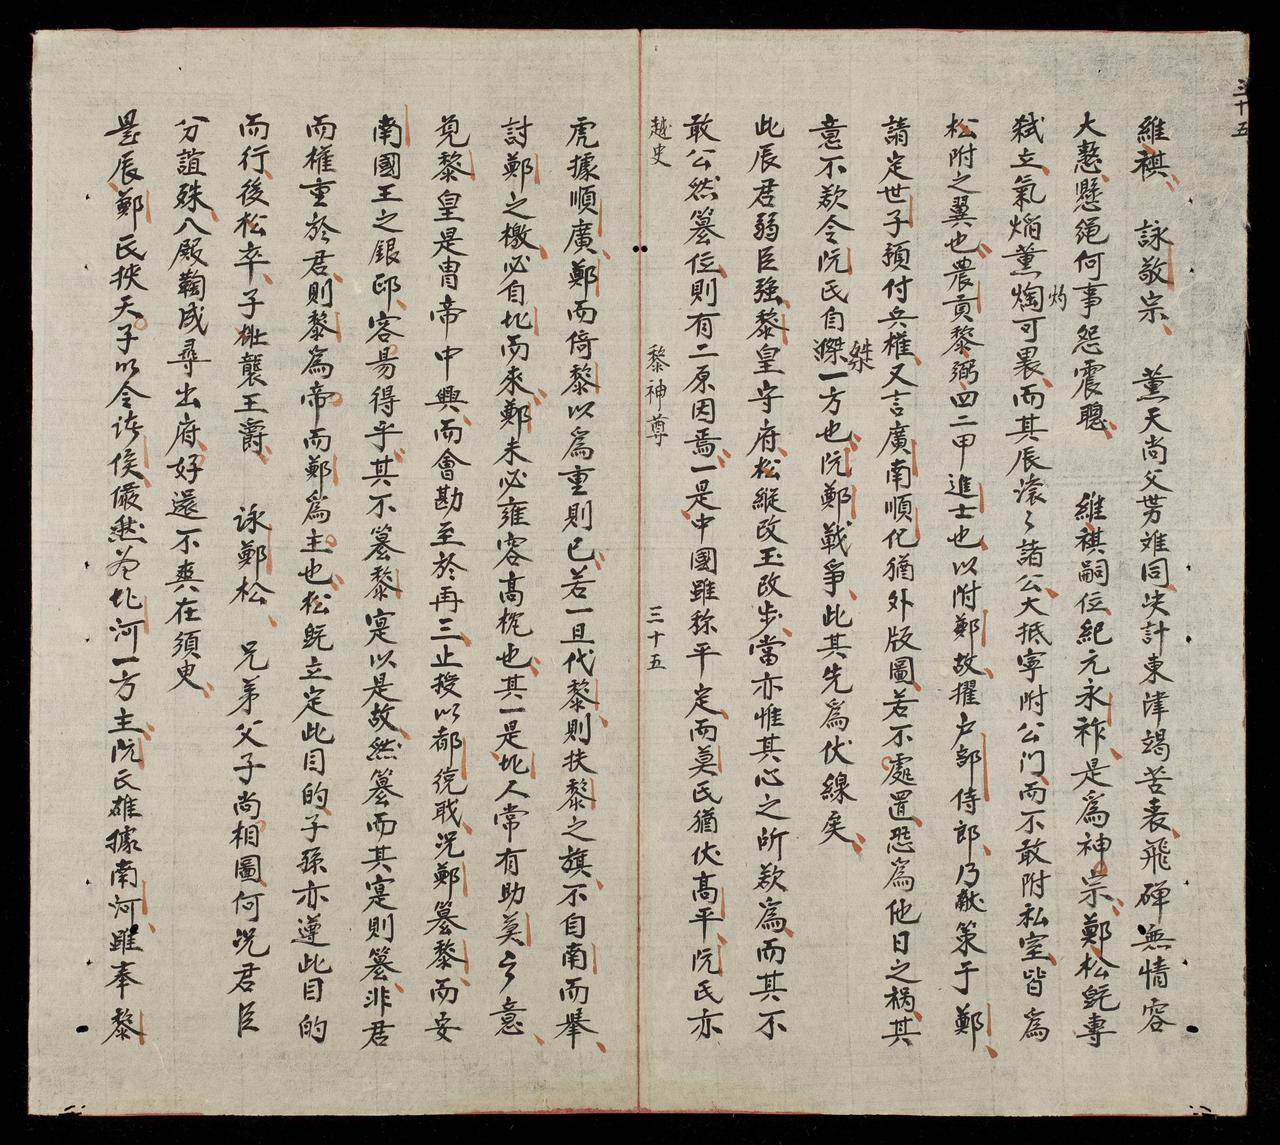 三十五
維祺 詠敬宗 薰天尚父勢难同决計東津竭苦衷飛碑無情容
大憝懸繩何事怨震聰 維祺嗣位紀元永祚是爲神宗鄭松既專
弑立氣焰薰灼可畏而其辰滚〻諸公大抵寕附公门而不敢附私室皆爲
松附之翼也農貢黎弼四二甲進士也以附鄭故擢户部侍郎乃献策于鄭
請定世子預付兵權又言廣南順化猶外版圖若不處置恐爲他日之祸其
意不欲令阮氏自桀一方也阮鄭戰爭此其先爲伏線矣
此辰君弱臣强黎皇守府松縱改玉改步當亦惟其心之所欲爲而其不
敢公然簒位則有二原因焉一是中國雖称平定而莫氏猶伏高平阮氏亦
越史 黎神尊 三十五
虎據順廣鄭而倚黎以爲重則已若一旦代黎則扶黎之旗不自南而舉
討鄭之檄必自北而來鄭未必雍容高枕也其一是北人常有助莫之意
見黎皇是冑帝中興而會勘至於再三止授以都統戢况鄭簒黎而安
南國王之銀印容昜得乎其不簒黎寔以是故然簒而其寔則簒非君
而權重於君則黎爲帝而鄭爲主也松既立定此目的子孫亦遵此目的
而行後松卒子梉襲王爵 詠鄭松 兄弟父子尚相圖何况君臣
分誼殊八殿鞫成尋出府好還不爽在須臾
是辰鄭氏挾天子以令诸侯儼然爲北河一方主阮氏雄據南河雖奉黎